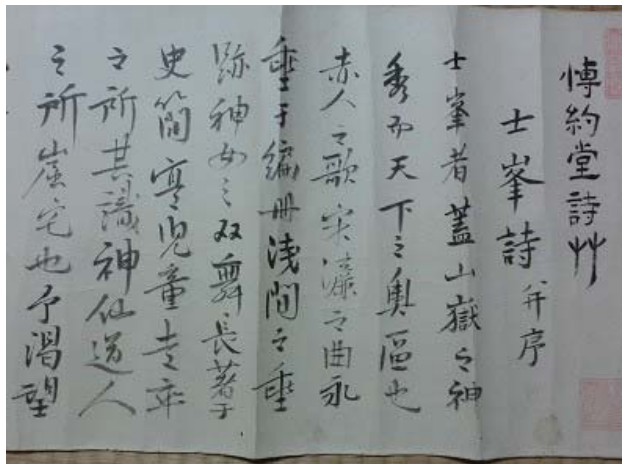 愽約堂詩艸
士峯詩 并序
士峯者蓋山嶽之神
秀而天下之奧區也
赤人之歌宋濂之曲永
垂于編冊浅間之垂
跡神女之双舞長著于
史簡寔児童走卒
之所其識神仙道人
之所崖宅也予渴望